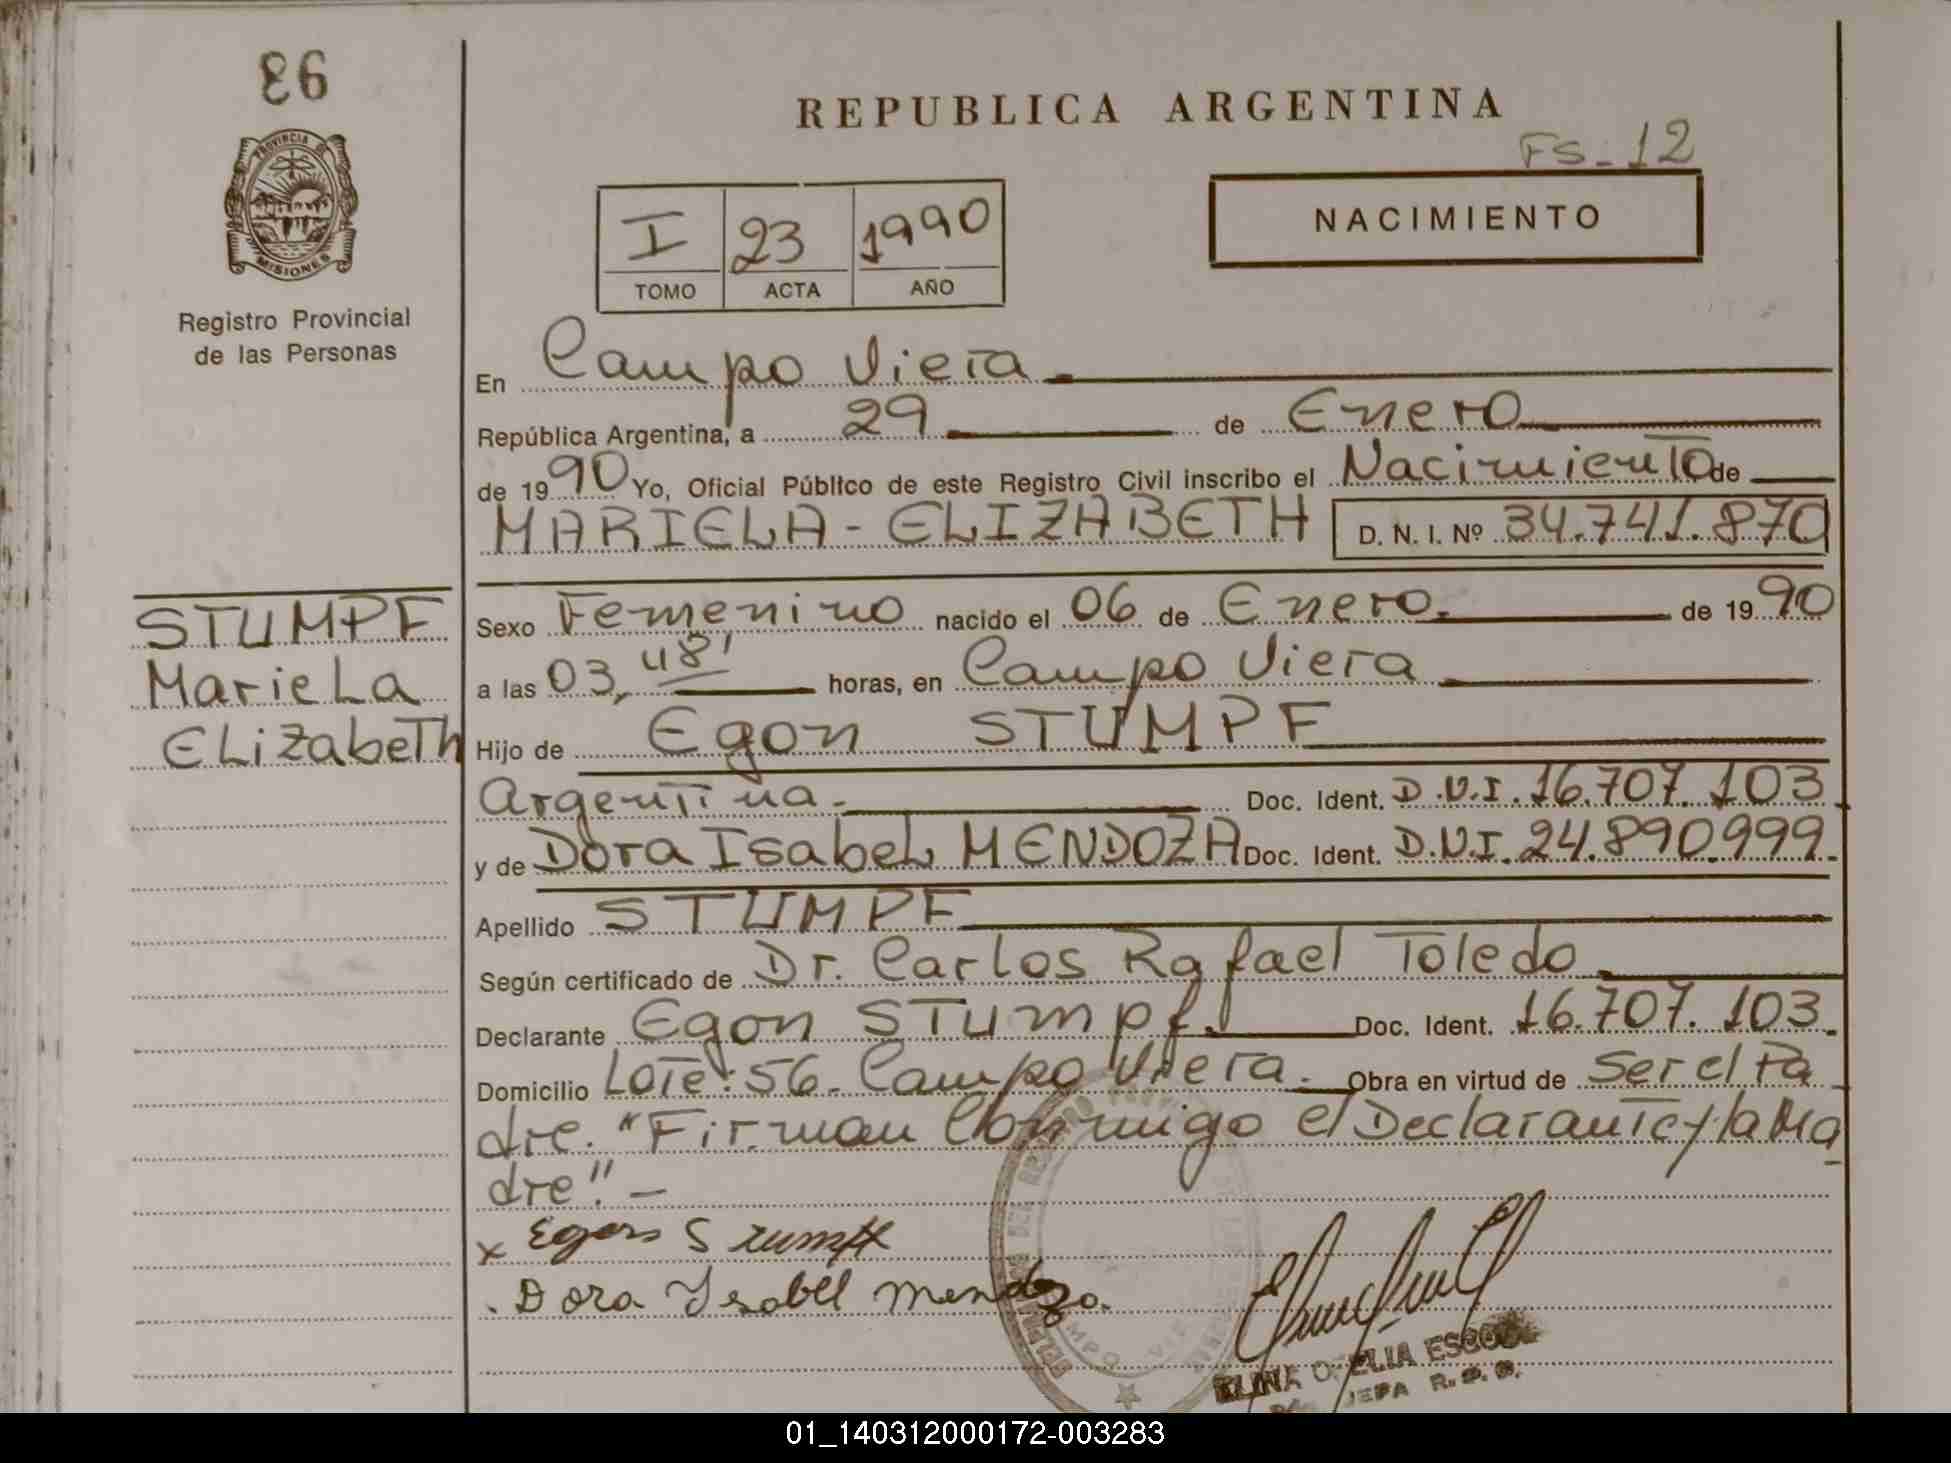 REPUBLICA ARGENTINA
FS-12
PROVINCIA DE
MISIONES
Registro Provincial
de las Personas
I 23 1990
TOMO ACTA AÑO
NACIMIENTO
En Campo Viera
República Argentina, a 29 de Enero
de 1990 Yo, Oficial Público de este Registro Civil inscribo el Nacimiento de
MARIELA - ELIZABETH D. N. I. Nº 34.741.870
STUMPF
Mariela
Elizabeth
Sexo Femenino nacido el 06 de Enero. de 1990
a las 03, 48' horas, en Campo Viera
Hijo de Egon STUMPF
Argentina. Doc. Ident. D.N.I. 16.707.103
y de Dora Isabel MENDOZA Doc. Ident. D.N.I. 24.890.999.
Apellido STUMPF
Según certificado de Dr. Carlos Rafael Toledo
Declarante Egon Stumpf. Doc. Ident. 16.707.103.
Domicilio Lote: 56. Campo Viera. Obra en virtud de Ser el Pa
dre. "Firman Conmigo el Declarante y la Ma
dre". -
x Egon Stumpf
. Dora Ysabel Mendoza.
ELIA ESCO
JEFA R.
01_140312000172-003283